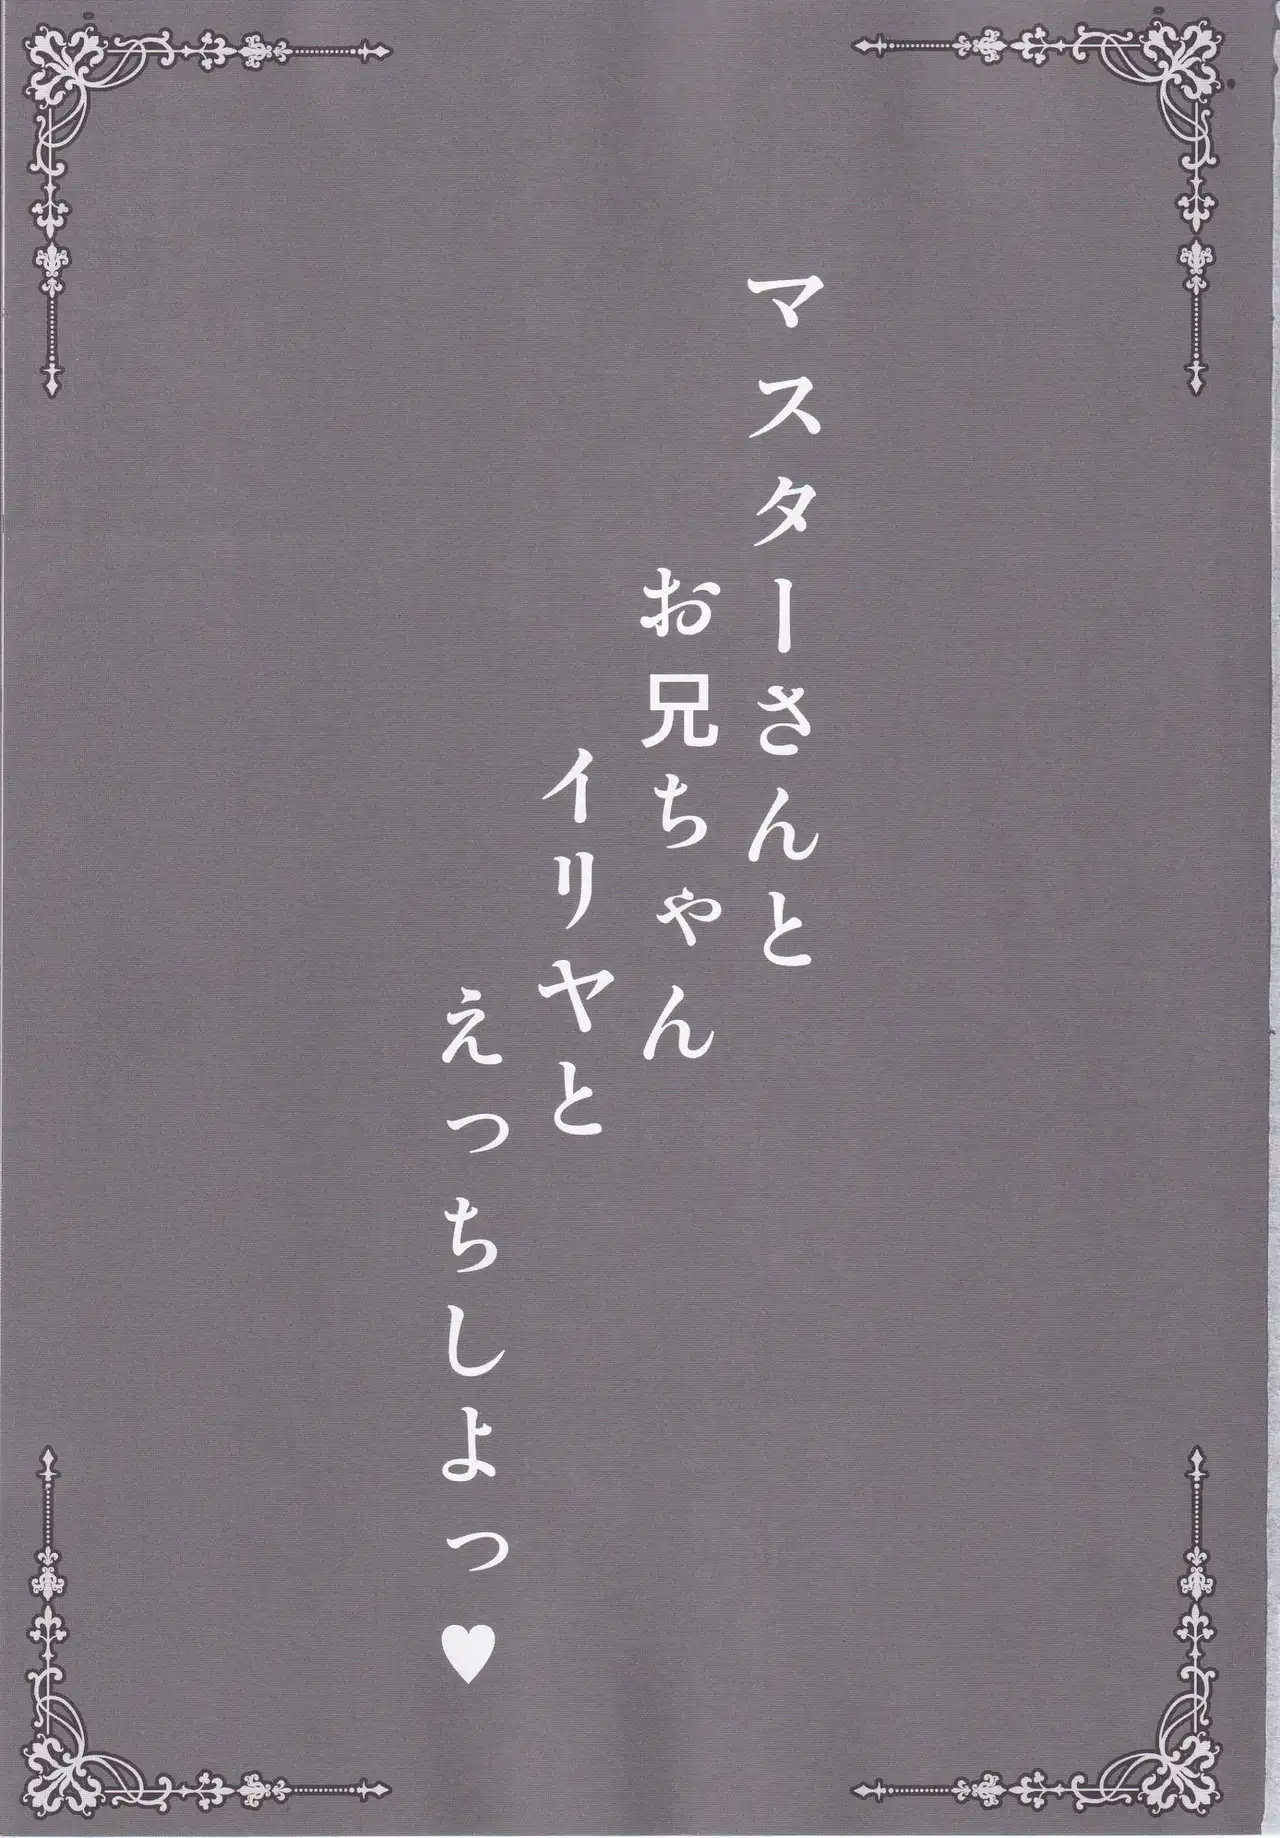 マスターさんと
お兄ちゃん
イリヤと
えっちしよっ♥